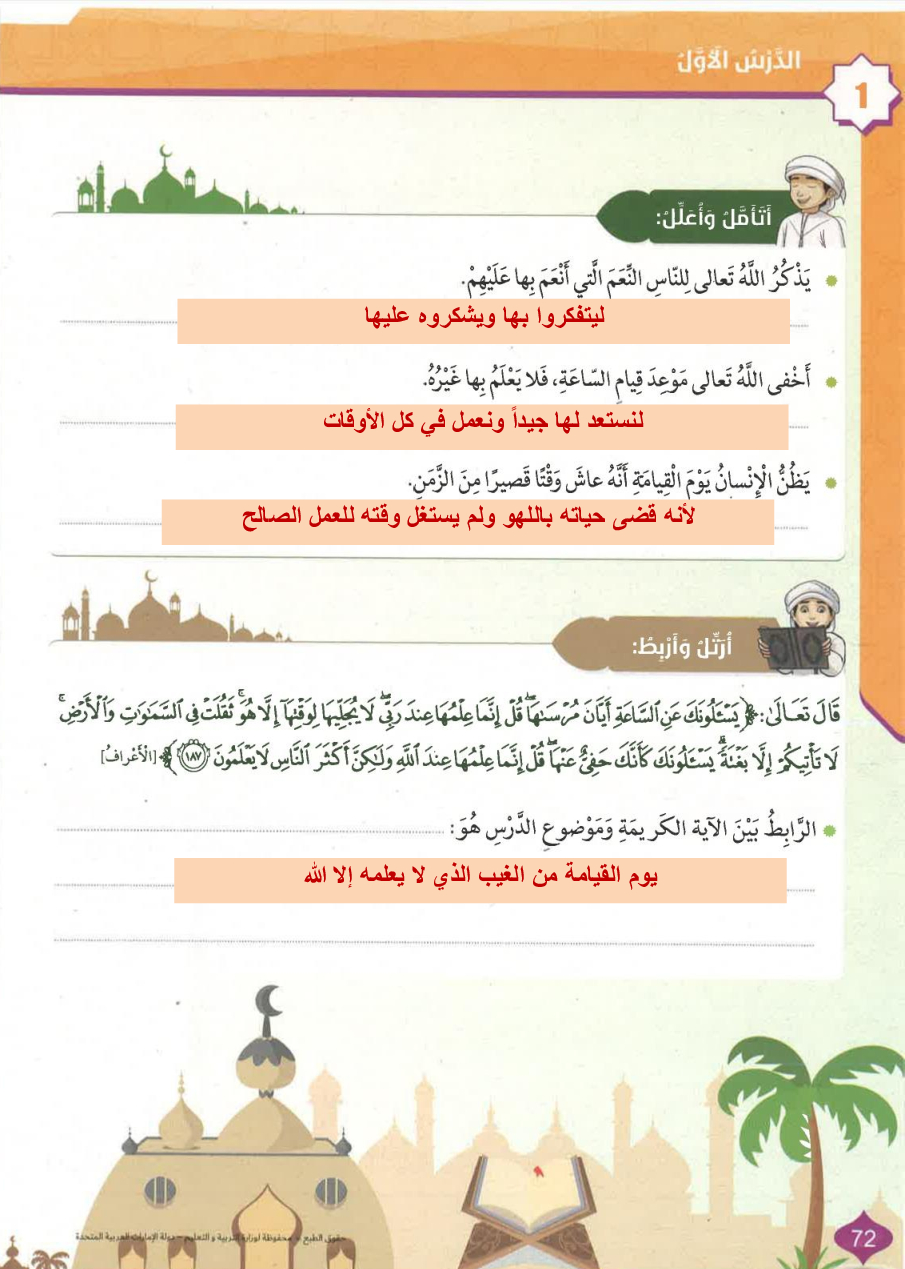 الدَّرْسُ الْأَوَّلُ
1
أَتَأَمَّلُ وَأُعَلِّلُ:
يَذْكُرُ اللَّهُ تَعالى لِلنّاسِ النِّعَمَ الَّتي أَنْعَمَ بِها عَلَيْهِمْ.
ليتفكروا بها ويشكروه عليها
أَخْفى اللَّهُ تَعالى مَوْعِدَ قِيامِ السّاعَةِ، فَلا يَعْلَمُ بِها غَيْرُهُ.
لنستعد لها جيداً ونعمل في كل الأوقات
يَظُنُّ الْإِنْسانُ يَوْمَ الْقِيامَةِ أَنَّهُ عاشَ وَقْتًا قَصيرًا مِنَ الزَّمَنِ.
لأنه قضى حياته باللهو ولم يستغل وقته للعمل الصالح
أُرَتِّلُ وَأَرْبِطُ:
قَالَ تَعَالَىٰ: ﴿يَسْـَٔلُونَكَ عَنِ ٱلسَّاعَةِ أَيَّانَ مُرْسَىٰهَا ۖ قُلْ إِنَّمَا عِلْمُهَا عِندَ رَبِّي ۖ لَا يُجَلِّيهَا لِوَقْتِهَآ إِلَّا هُوَ ۚ ثَقُلَتْ فِى ٱلسَّمَٰوَٰتِ وَٱلْأَرْضِ ۚ
لَا تَأْتِيكُمْ إِلَّا بَغْتَةً ۗ يَسْـَٔلُونَكَ كَأَنَّكَ حَفِىٌّ عَنْهَا ۖ قُلْ إِنَّمَا عِلْمُهَا عِندَ ٱللَّهِ وَلَٰكِنَّ أَكْثَرَ ٱلنَّاسِ لَا يَعْلَمُونَ ١٨٧﴾ [الْأَعْراف]
الرَّابِطُ بَيْنَ الآيةِ الكَريمَةِ وَمَوْضوعِ الدَّرْسِ هُوَ:
يوم القيامة من الغيب الذي لا يعلمه إلا الله
حقوق الطبع © محفوظة لوزارة التربية والتعليم – دولة الإمارات العربية المتحدة
72